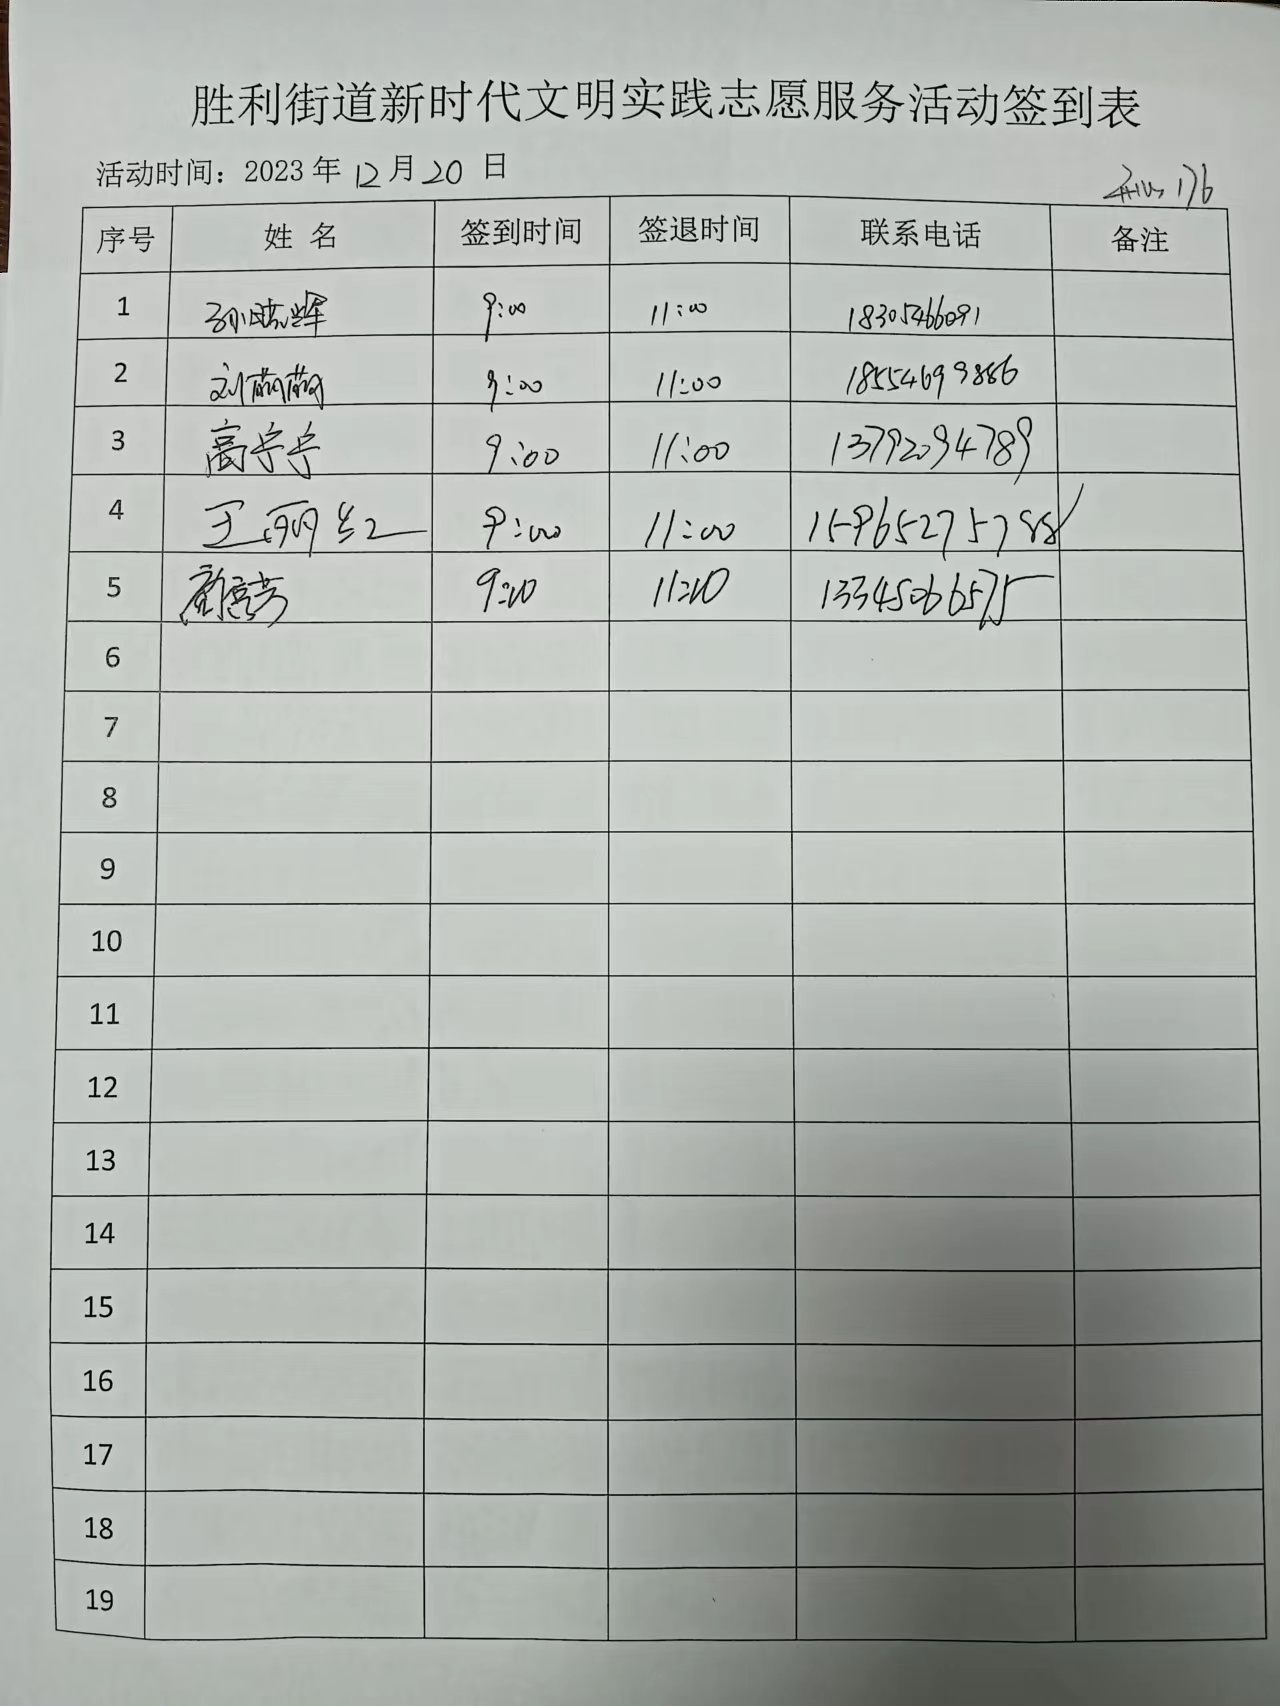 胜利街道新时代文明实践志愿服务活动签到表
活动时间：2023 年 12 月 20 日
176
序号 姓 名 签到时间 签退时间 联系电话 备注
1 孙晓辉 9:00 11:00 18305466091
2 刘萌萌 9:00 11:00 18554699886
3 高宁宁 9:00 11:00 13792094789
4 王丽红 9:00 11:00 15965275788
5 9:10 11:10 13345066575
6
7
8
9
10
11
12
13
14
15
16
17
18
19